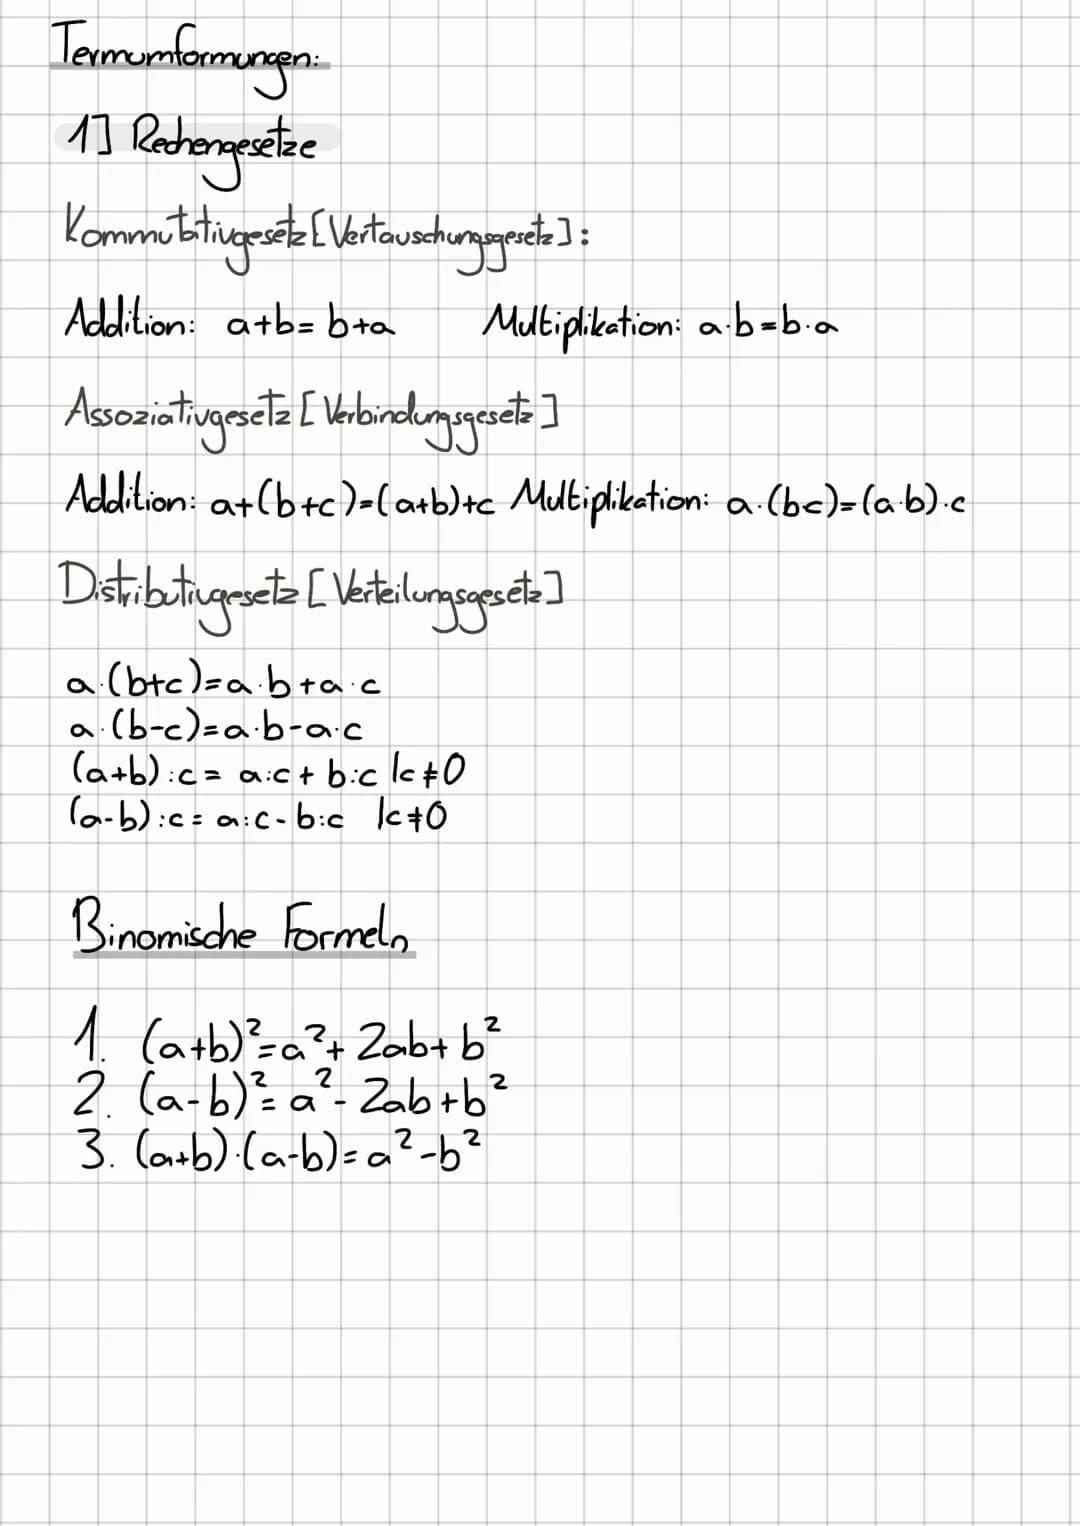 Termumformungen:
1] Rechengesetze
Kommutativgesetz [Vertauschungsgesetz]:
Addition: a+b= b+a Multiplikation: a·b=b·a
Assoziativgesetz [Verbindungsgesetz]
Addition: a+(b+c)=(a+b)+c Multiplikation: a·(bc)=(a·b)·c
Distributivgesetz [Verteilungsgesetz]
a·(b+c)=a·b+a·c
a·(b-c)=a·b-a·c
(a+b):c= a:c+ b:c |c≠0
(a-b):c= a:c-b:c |c≠0
Binomische Formeln
1. (a+b)²=a²+2ab+b²
2. (a-b)²=a²-2ab+b²
3. (a+b)·(a-b)=a²-b²